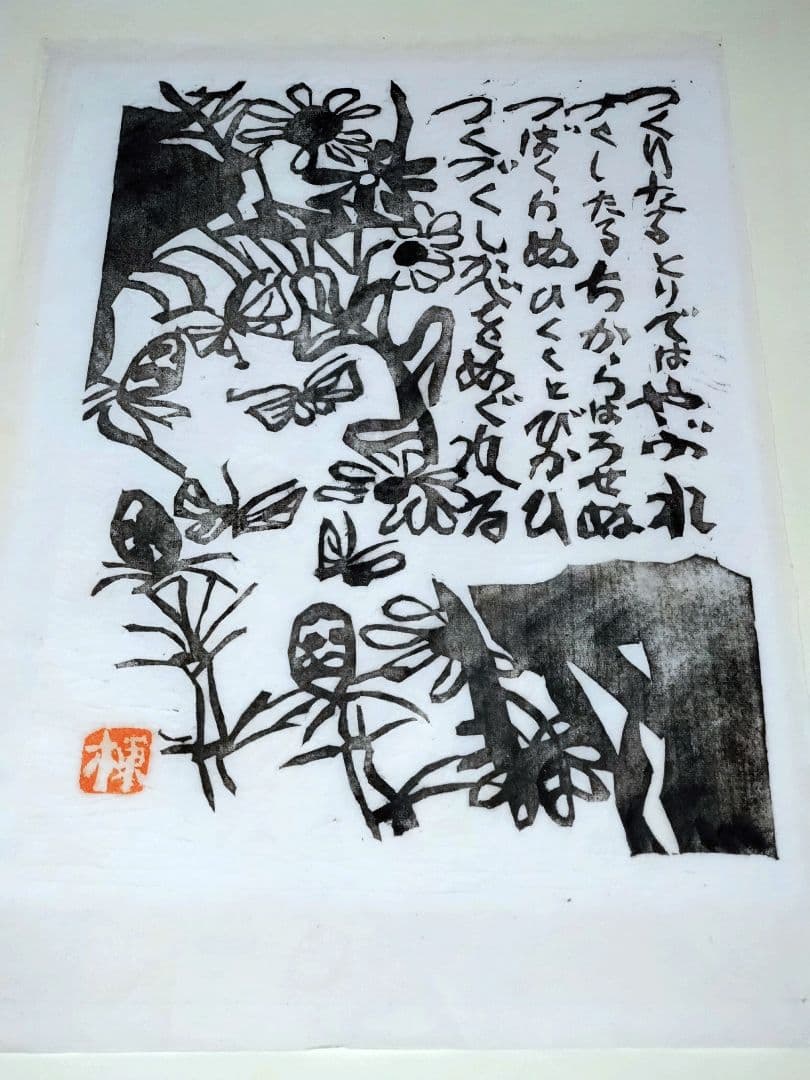 つくりたるとりではやぶれ
つくしたるちからはうせぬ
つばくらめひくくとびかひ
つくづくし をめぐれる
棟